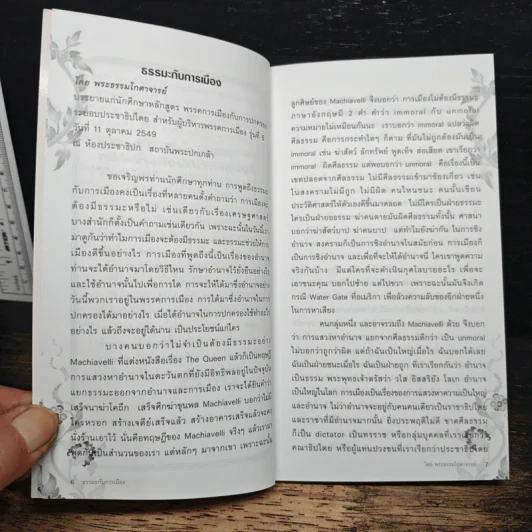 ธรรมะกับการเมือง
โดย พระธรรมโกศาจารย์
บรรยายแก่นักศึกษาหลักสูตร พรรคการเมืองกับการปกครอง
ระบอบประชาธิปไตย สำหรับผู้บริหารพรรคการเมือง รุ่นที่
วันที่ 11 ตุลาคม 2549
ณ ห้องประชาธิปก สถาบันพระปกเกล้า
ขอเจริญพรท่านนักศึกษาทุกท่าน การพูดถึงธรรมะ
กับการเมืองคงเป็นเรื่องที่หลายคนตั้งคำถามว่า การเมือง
ต้องมีธรรมะหรือไม่ เช่นเดียวกับเรื่องเศรษฐศาสตร์
บางสำนักก็ตั้งเป็นคำถามเช่นเดียวกัน เพราะฉะนั้นในวันนี้
มาดูกันว่าทำไมการเมืองจะต้องมีธรรมะ และธรรมะช่วยให้การ
เมืองดีขึ้นอย่างไร การเมืองที่พูดถึงนี้เป็นเรื่องของอำนาจ
ท่านจะได้อำนาจมาโดยวิธีไหน รักษาอำนาจไว้ยั่งยืนอย่างไร
และใช้อำนาจนั้นไปเพื่อการใด การจะให้ได้มาซึ่งอำนาจอย่าง
วันนี้พวกเราอยู่ในพรรคการเมือง การได้มาซึ่งอำนาจในการ
ปกครองได้มาอย่างไร เมื่อได้อำนาจในการปกครองใช้ทำอะไร
อย่างไร แล้วถึงจะอยู่ได้นาน เป็นประโยชน์แก่ใคร
บางคนบอกว่าไม่จำเป็นต้องมีธรรมะอย่าง
Machiavelli ที่แต่งหนังสือเรื่อง The Queen แล้วเป็นทฤษฎี
การแสวงหาอำนาจในตะวันตกที่ยังมีอิทธิพลอยู่ในปัจจุบัน
แยกธรรมะออกจากอำนาจและการเมือง เราจะได้ยินคำว่า
เสร็จนาฆ่าโคถึก เสร็จศึกฆ่าขุนพล Machiavelli บอกว่าไม่มี
ใครหรอก สร้างเจดีย์เสร็จแล้ว สร้างอาคารเสร็จแล้วจะคง
นั่งร้านเอาไว้ นั่นคือทฤษฎีของ Machiavelli จริงๆ แล้วเรา
พูดกันเป็นสำนวนของเรา แต่หลักๆ มาจากเขา เพราะฉะนั้น
6 ธรรมะกับการเมือง
ลูกศิษย์ของ Machiavelli จึงบอกว่า การเมืองไม่ต้องมีธรรมะ
ภาษาอังกฤษมี 2 คำ คำว่า immoral กับ unmoral
ความหมายไม่เหมือนกันนะ เราบอกว่า immoral แปลว่าผิด
ศีลธรรม คือการกระทำใดๆ ก็ตาม ที่มันไม่ถูกต้องมันเป็น
immoral เช่น ฆ่าสัตว์ ลักทรัพย์ พูดเท็จ ส่อเสียด เขาเรียกว่า
immoral ผิดศีลธรรม แต่พอบอกว่า unmoral คือเรื่องนี้เป็น
เขตปลอดจากศีลธรรม ไม่มีศีลธรรมเข้ามาข้องเกี่ยว เช่น
ในสงครามไม่มีถูก ไม่มีผิด คนไหนชนะ คนนั้นเขียน
ประวัติศาสตร์ให้ตัวเองดีขึ้นมาตลอด ไม่มีใครเป็นฝ่ายธรรมะ
ใครเป็นฝ่ายอธรรม ฆ่าคนตายมันผิดศีลธรรมทั้งนั้น ศาสนา
บอกว่าฆ่าสัตว์บาป ฆ่าคนบาป แต่ทำไมยังฆ่ากัน ในการชิง
อำนาจ สงครามก็เป็นการชิงอำนาจในสมัยก่อน การเมืองก็
เป็นการชิงอำนาจ และเพื่อที่จะให้ได้อำนาจนี่ ใครเขาพูดความ
จริงกันบ้าง มีแต่ใครที่จะดำเนินกุศโลบายอะไร เพื่อจะ
เอาชนะคุณ บอกไปซ้าย แต่ไปขวา เพราะฉะนั้นมันจึงเกิด
กรณี Water Gate ที่อเมริกา เพื่อล้วงความลับของอีกฝ่ายหนึ่ง
ในการหาเสียง
คนกลุ่มหนึ่ง และอาจรวมถึง Machiavelli ด้วย จึงบอก
ว่า การแสวงหาอำนาจ แยกจากศีลธรรมดีกว่า เป็น unmoral
ไม่บอกว่าถูกกว่าผิด แต่ถ้าฉันเป็นใหญ่เมื่อไร ฉันบอกได้เลย
ฉันเป็นฝ่ายชนะเมื่อไร ฉันเป็นฝ่ายถูก ที่เราเรียกกันว่า อำนาจ
เป็นธรรม พระพุทธเจ้าตรัสว่า วโส อิสสริยัง โลเก อำนาจ
เป็นใหญ่ในโลก การเมืองเป็นเรื่องของการแสวงหาความเป็นใหญ่
และอำนาจ ไม่ว่าอำนาจจะอยู่กับคนคนเดียวเป็นราชาธิปไตย
และราชาที่มีอำนาจมากนั้น ยิ่งประพฤติไม่ดี ขาดศีลธรรม
ก็เป็น dictator เป็นทรราช หรือกลุ่มบุคคลที่เราเรียกว่า
คณาธิปไตย หรือผู้แทนปวงชนที่เราเรียกว่าประชาธิปไตย
โดย พระธรรมโกศาจารย์ 7